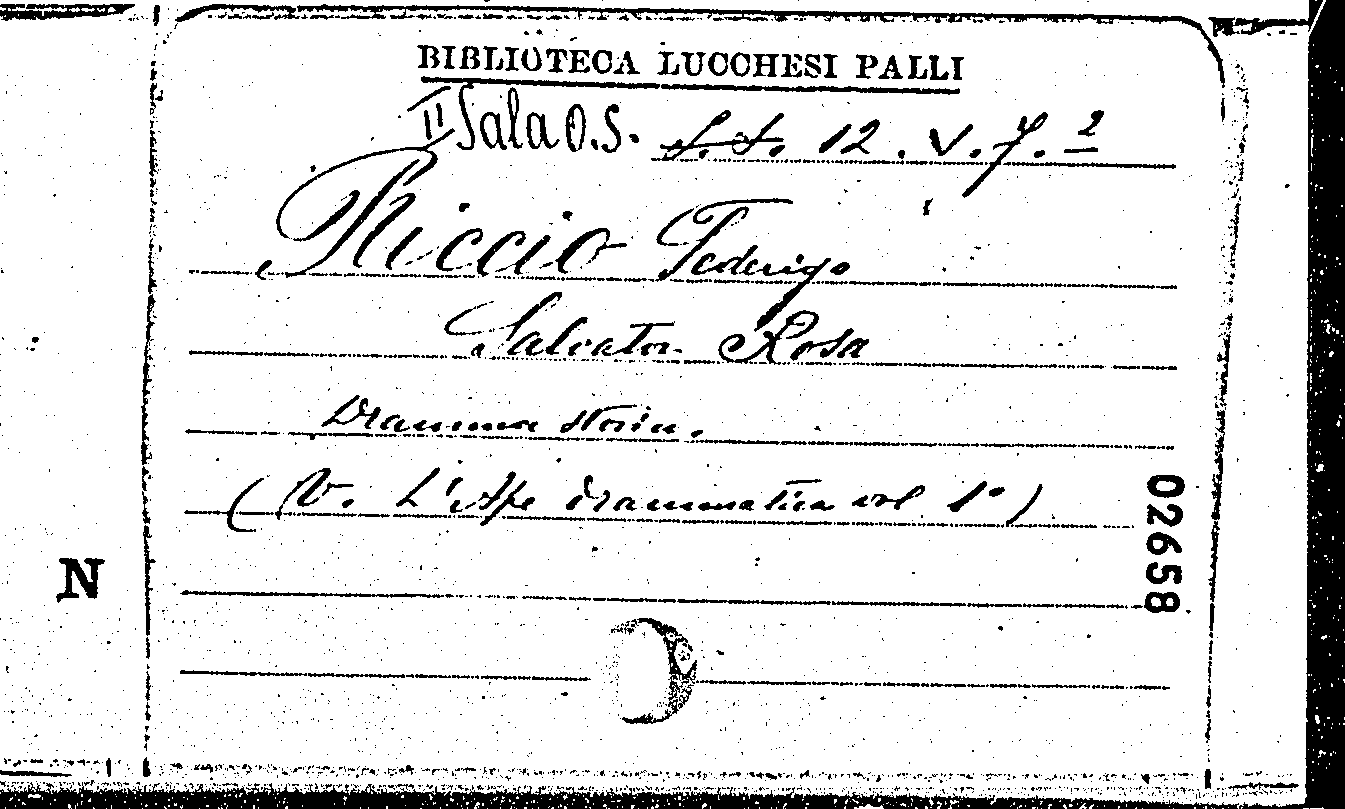 BIBLIOTECA LUCCHESI PALLI
II Sala O.S. S.S. 12. V. 7. 2
Riccio Federigo
Salvator Rosa
Dramma storico.
(V. L'Ape drammatica vol 1°)
02658
N